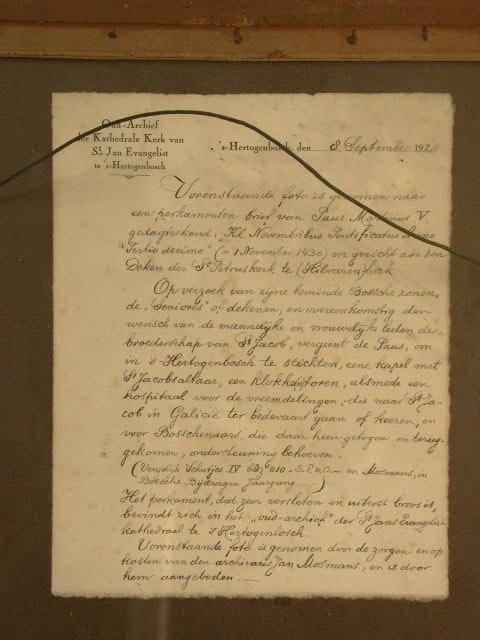 Oud-Archief
der Kathedrale Kerk van
St. Jan Evangelist
te 's-Hertogenbosch
's-Hertogenbosch, den 8 September 1928
Vorenstaande foto is genomen naar
een perkamenten brief van Paus Martinus V.
gedagteekend: "Kl Novembribus Pontificatus Anno
Tertio decimo" (= 1 November 1430) en gericht aan den
Deken der St Petruskerk te (Hilvaren)beek
Op verzoek van zijne beminde Bossche zonen,
de "Seniores" of dekenen, en overeenkomstig den
wensch van de mannelijke en vrouwelijke leden der
broederschap van St Jacob, vergunt de Paus, om
in 's-Hertogenbosch te stichten, eene kapel met
St Jacobsaltaar, een klokkentoren, alsmede een
hospitaal voor de vreemdelingen, die naar St Ja-
cob in Galicië ter bedevaart gaan of keeren, en
voor Bosschenaars, die daar heen getogen en terug-
gekomen, ondersteuning behoeven.
(Vergelijk Schutjes IV blz 810 - S. E. & O. - en Mosmans, in
Bossche Bijdragen Jaargang .....)
Het perkament, dat zeer versleten en uiterst broos is,
bevindt zich in het "oud-archief" der St Jans Evangelist
kathedraal te 's Hertogenbosch.
Vorenstaande foto is genomen door de zorgen en op
kosten van den archivaris Jan Mosmans, en is door
hem aangeboden.